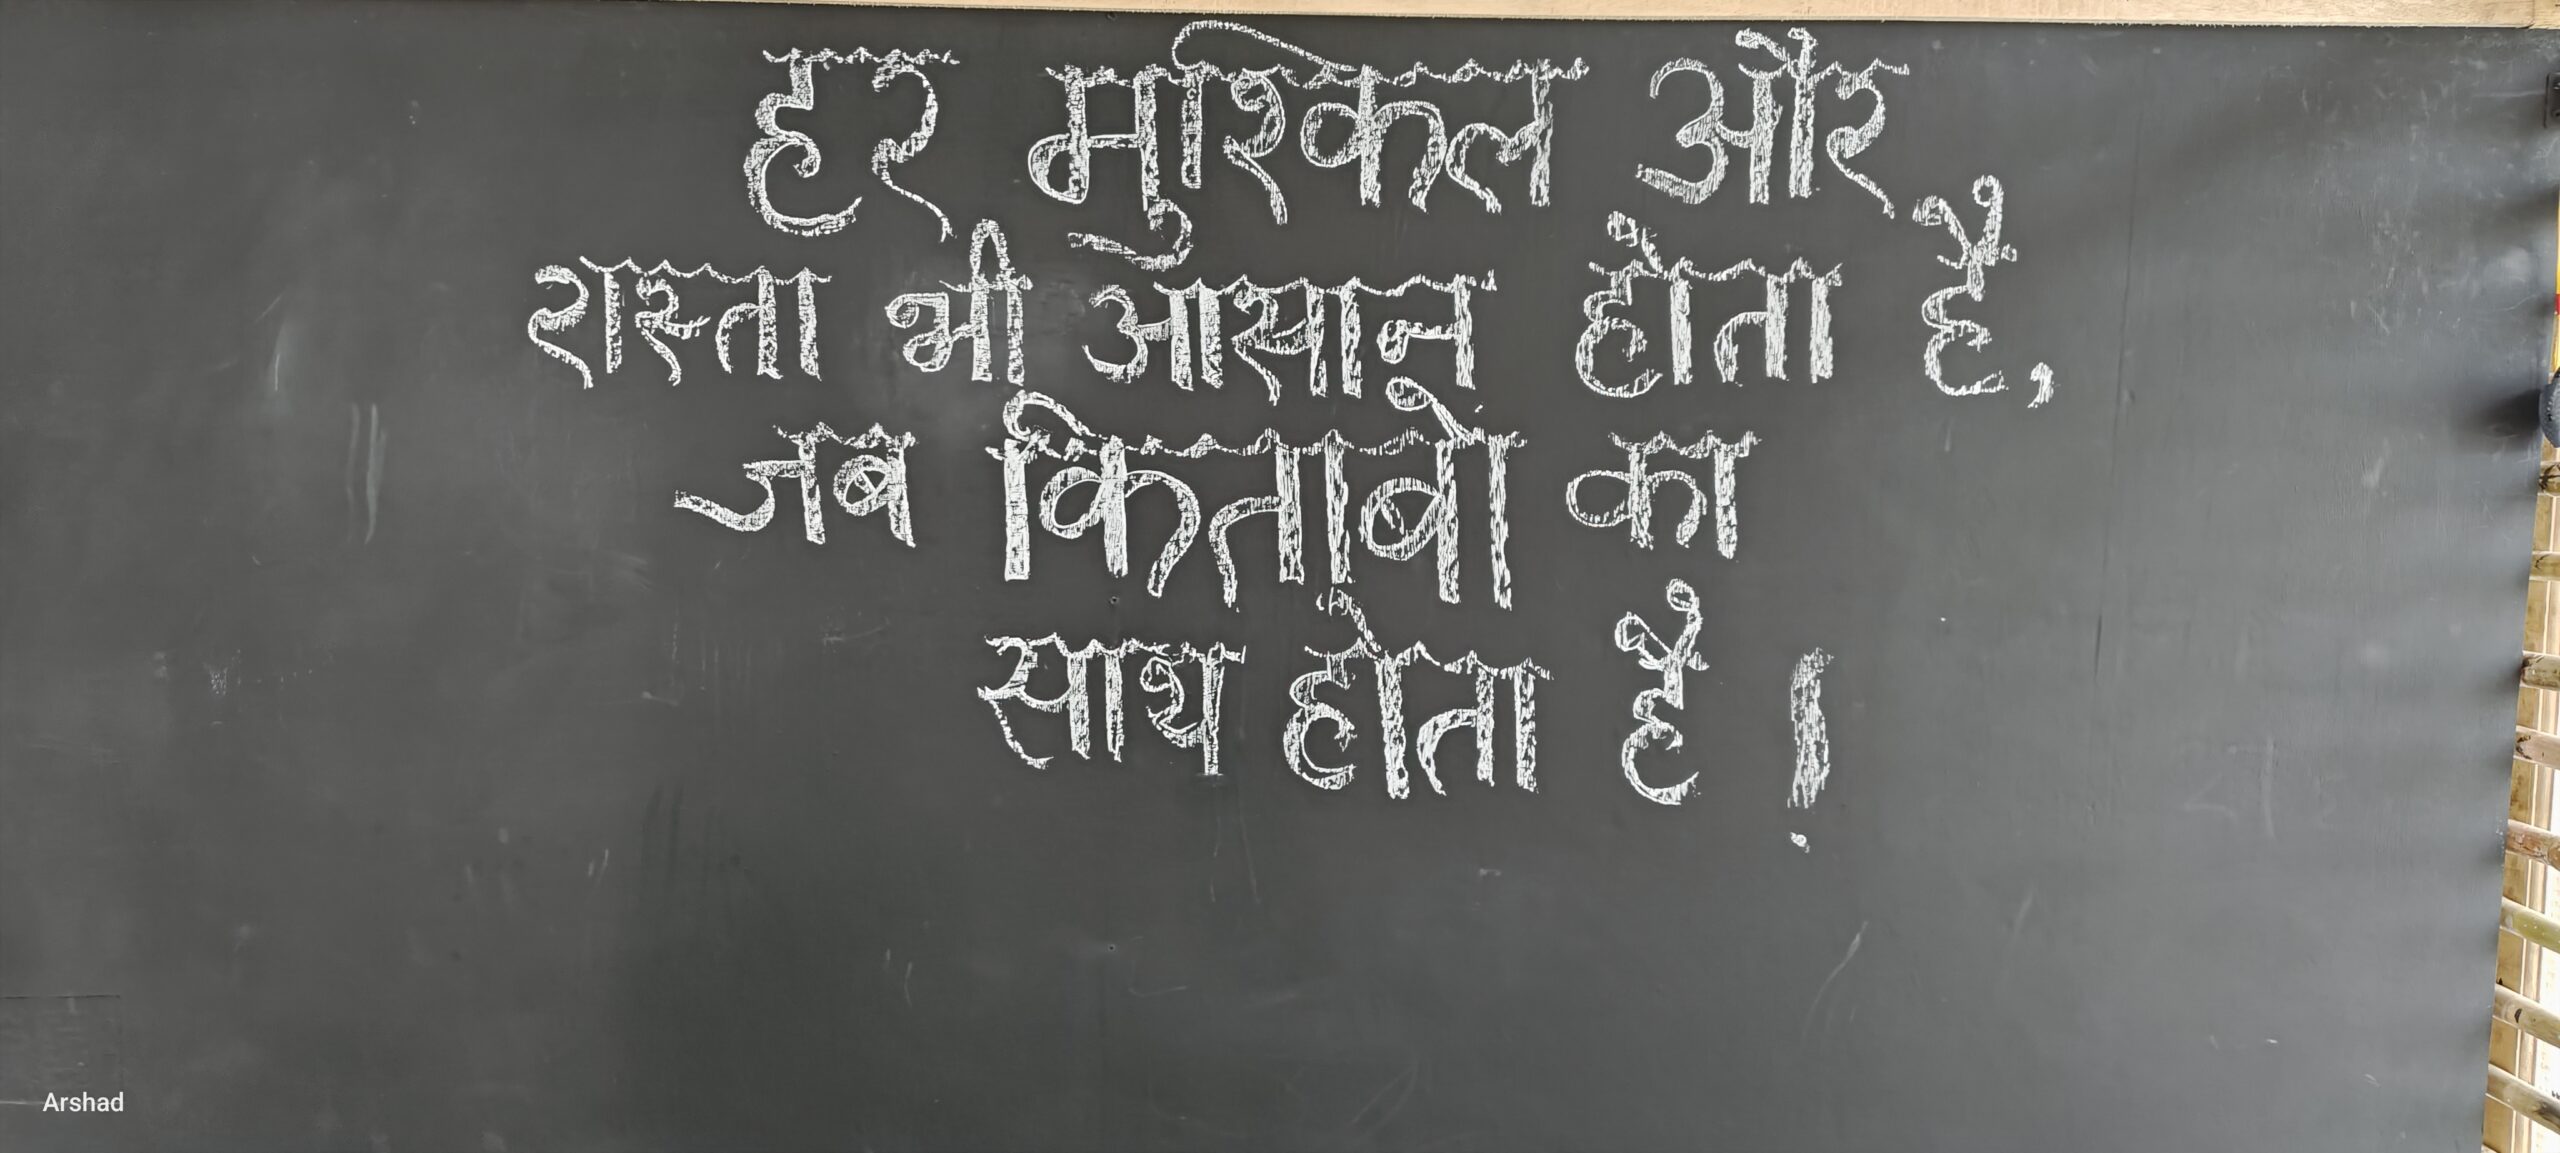 हर मुश्किल और
रास्ता भी आसान होता है,
जब किताबो का
साथ होता है !
Arshad